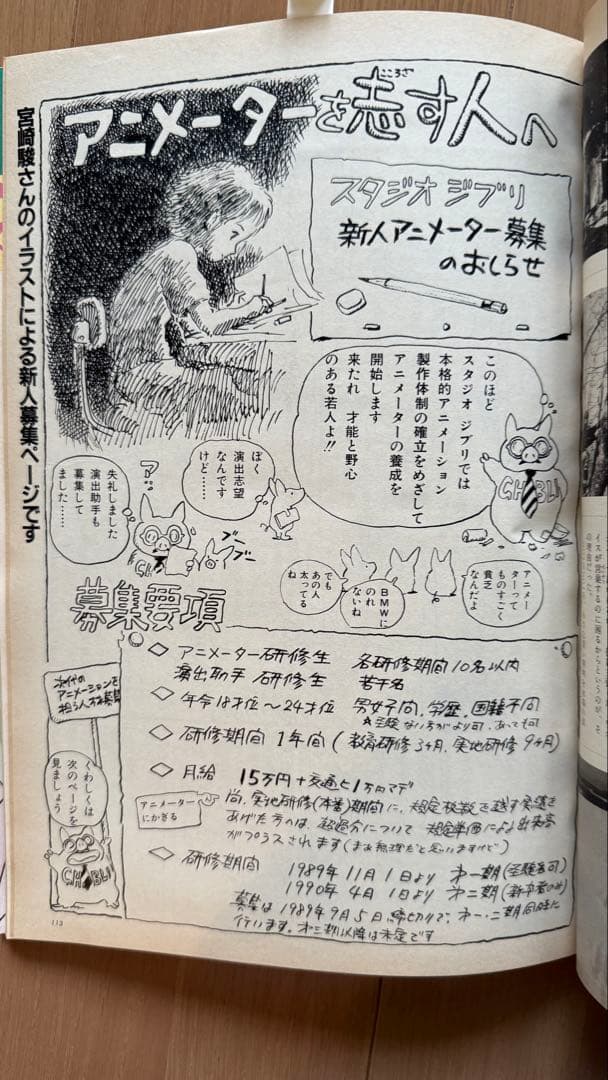 宮崎駿さんのイラストによる新人募集ページです
アニメーターを志す人へ
こころざ
スタジオ ジブリ
新人アニメーター募集
のおしらせ
このほど
スタジオ ジブリでは
本格的アニメーション
製作体制の確立をめざして
アニメーターの養成を
開始します
来たれ 才能と野心
のある若人よ!!
GHIBLI
ぼく
演出志望
なんです
けど……
失礼しました
演出助手も
募集して
ました……
ブーブー
アニメー
ターって
ものすごく
貧乏
なんだよ
BMWに
のれ
ないね
でも
あの人
太ってる
ね
募集要項
◇ アニメーター研修生 各研修期間10名以内
演出助手 研修生 若干名
◇ 年令18才位〜24才位 男女不問、学歴、国籍不問
◇ 研修期間 1年間 (教育研修3ヶ月、実地研修9ヶ月)
◇ 月給 15万円+交通ヒ1万円マデ
アニメーター
にかぎる
尚、実地研修(本番)期間に、規定枚数を越す実績を
あげた方のは、超過分について 規定単価による出来高
がプラスされます(まぁ無理だと思いますけど)
◇ 研修期間 1989年 11月 1日より 才一期
1990年 4月 1日より 才二期
募集は1989年9月5日締切りで、才一・二期同時に
行います。才三期以降は未定です
次代の
アニメーションを
担う人方募集
くわしくは
次のページを
見ましょう
GHIBLI
113
イスが営業するのに困るからというのが、そ
の理由だった。